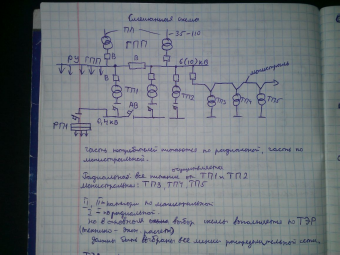 Смешанная схема
ПЛ
35-110
ГПП
В
В
РУ ГПП
В
6(10)кВ
магистраль
ТП1
АВ
ТП2
ТП3
ТП4
ТП5
РП1
0,4кВ
Часть потребителей питается по радиальной, часть по
магистральной.
осуществляется
Радиальная: все питание от ТП1 и ТП2
Магистральная: ТП3, ТП4, ТП5
по магистральной
I - по радиальной
но в основном выбор схемы выполняется по ТЭР.
(технико-экон. расчет)
быть выбраны все линии распределительной сети,